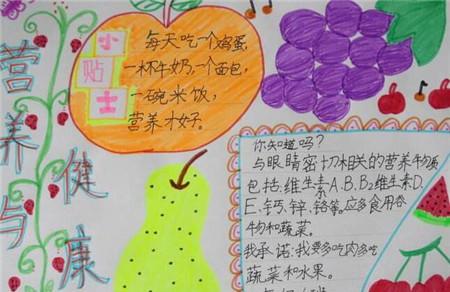 营养与
健康
小贴士
每天吃一个鸡蛋,
一杯牛奶,一个面包,
一碗米饭,
营养才好。
你知道吗?
与眼睛密切相关的营养物质
包括:维生素A、B、B2维生素D、
E、钙、锌、铬等。应多食用谷
物和蔬菜。
我承诺:我要多吃肉多吃
蔬菜和水果。